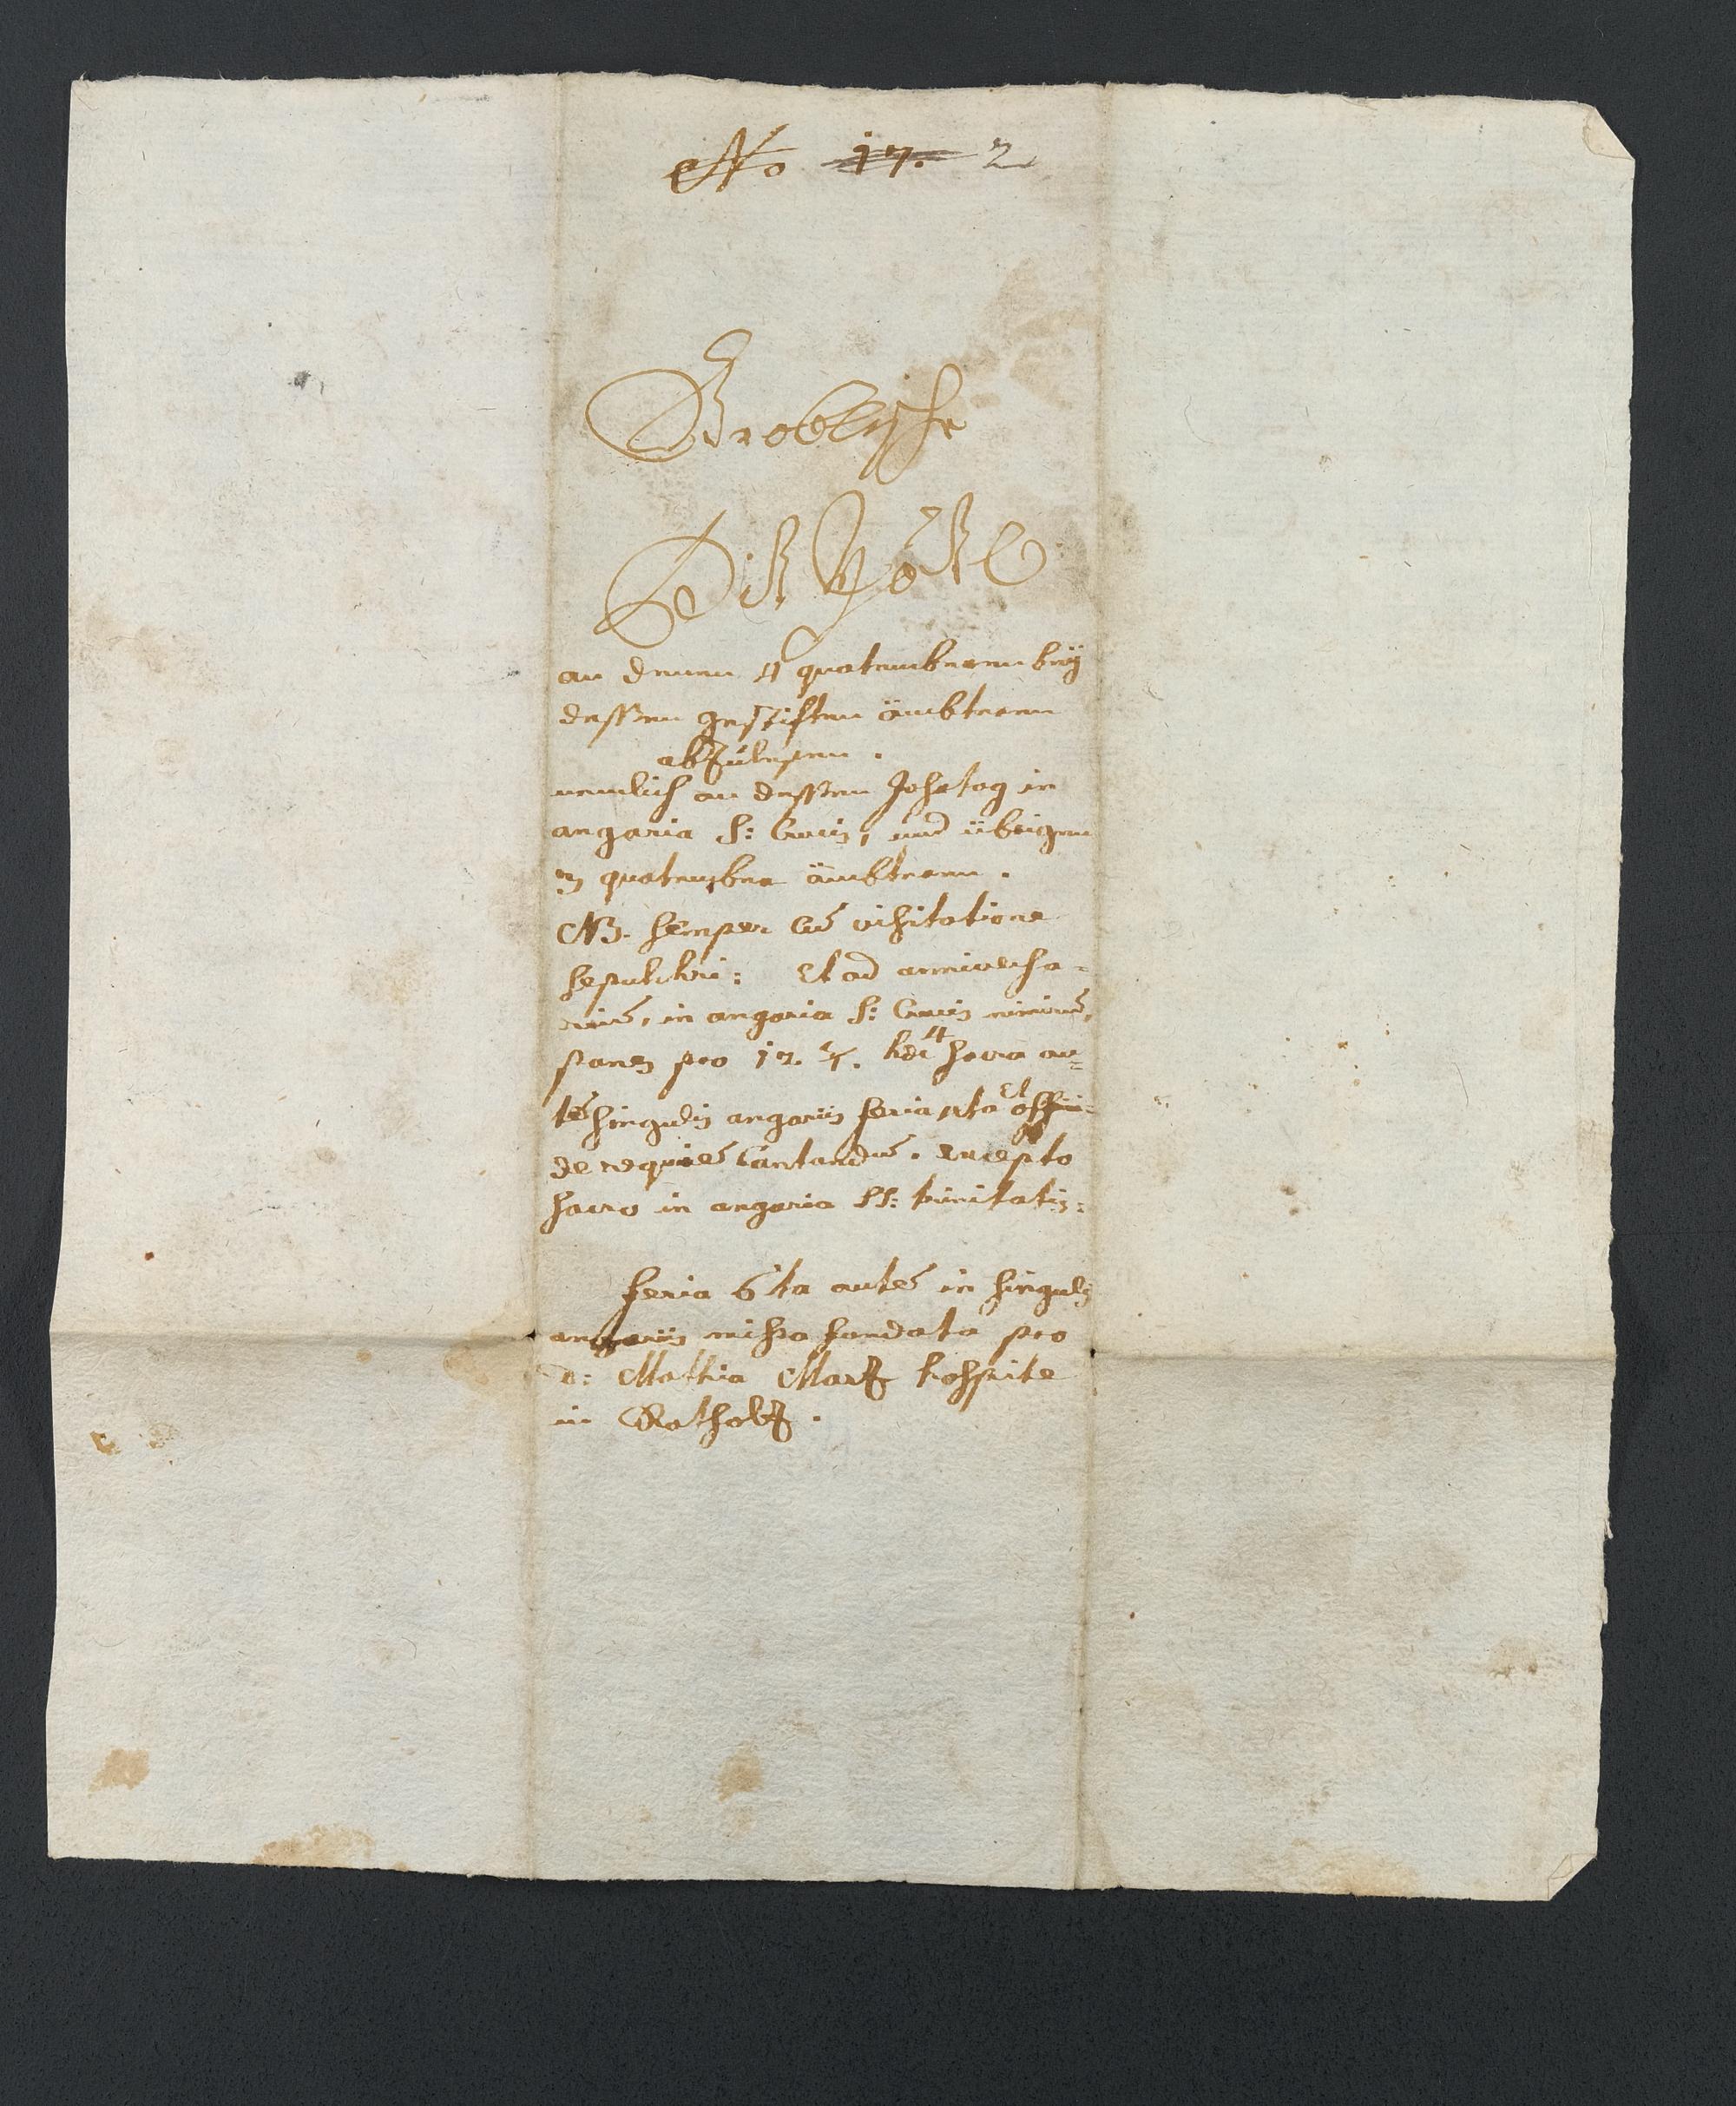 No 17. 2
Groblische
an denen 4 quatembernen beÿ
dessen gestiften ämbteren
abZulesen.
nemlich an dessen Jahrtag in
angaria S: Crucis, und übrigen
3 quatember ämbteren.
NB. semper cū visitatione
sepulchri: Et ad anniversa-
riū, in angaria S: Crucis
panes pro 17. hora au=
tē singulis angariis feria 4ta Et
de requiē cantandū. excepto
sacro in angaria SS: trinitatis:
feria 6ta autē in singulis
angariis missa fundata pro
D: Mathia MarZ hospite
in RatholZ.